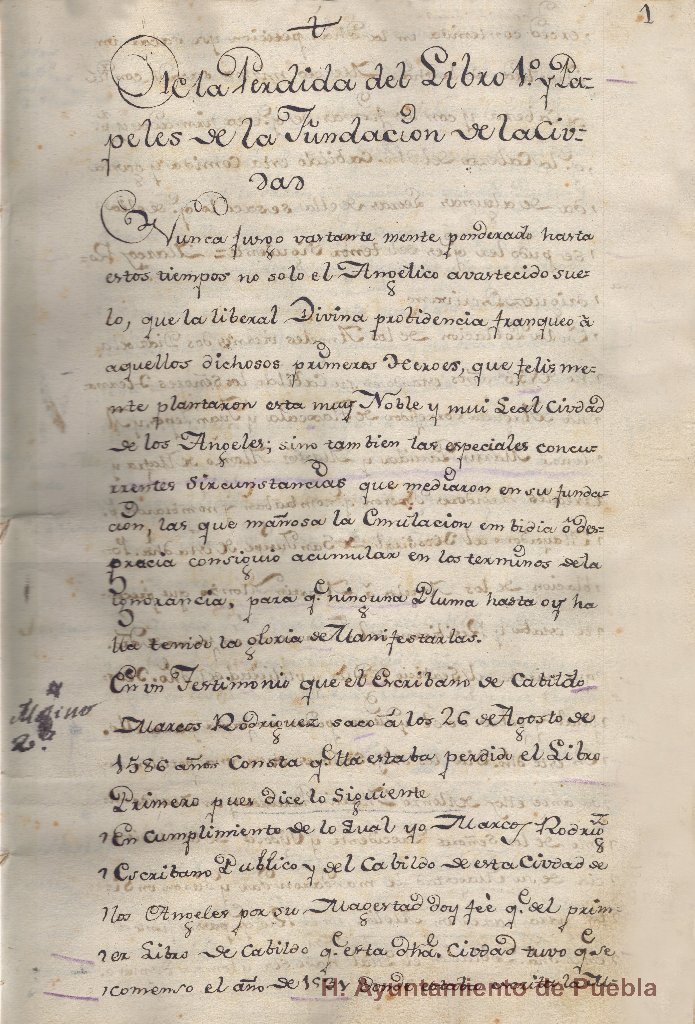 1
De la Perdida del Libro 1.º y Pa-
peles de la Fundacion de la Civ-
dad
Nunca Juzgo vastante mente ponderado hasta
estos tiempos no solo el Angelico avastecido sue-
lo, que la liberal Divina probidencia franqueo â
aquellos dichosos primeros Heroes, que felis me-
nte plantaron esta muy Noble y mui Leal Ciudad
de los Angeles; sino tambien las especiales concu-
rrentes Sircunstancias que mediaron en su funda-
cion, las que mañosa la Emulacion embidia ô des-
gracia consiguio acumular en los terminos de la
Ignorancia, para q.e ninguna Pluma hasta oy ha
lla tenido la gloria de Manifestarlas.
En vn Testimonio que el Escribano de Cabildo
Marcos Rodriguez sacó â los 26 de Agosto de
1586 años Consta q.e lla estaba perdido el Libro
Primero pues dice lo Siguiente
En cumplimiento de lo Qual yo Marcos Rodrig.z
Escribano Publico y del Cabildo de esta Ciudad de
los Angeles por su Magestad doy feè q.e del prim-
er Libro de Cabildo q.e esta dha. Ciudad tuvo q.e se
comenso el año de donde estaba escrito la
H. Ayuntamiento de Puebla